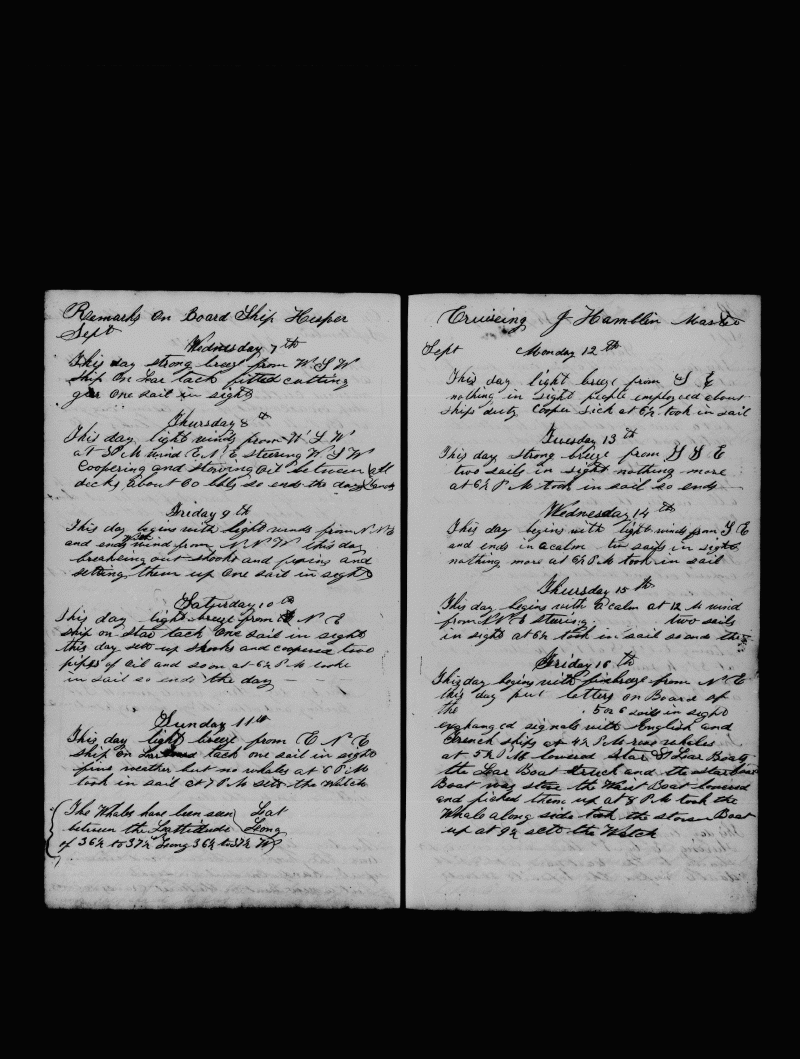 Remarks on Board Ship Hesper
Sept
Wednesday 7th
This day strong breeze from W S W
Ship on Lar tack fitted cutting
gear one sail in sight
Thursday 8th
This day light winds from W S W
at 3 P M wind E N E steering W S W
Coopering and stowing oil between
decks about 60 bbls so ends the day
Friday 9th
This day begins with light winds from N N E
and ends with wind from N N W this day
breaking out shooks and and
setting them up one sail in sight
Saturday 10th
This day light breeze from N E
ship on star tack one sail in sight
this day set up shooks and coopered two
of oil and soon at 6½ P M tooke
in sail so ends the day
Sunday 11th
This day light breeze from E N E
ship on tack one sail in sight
fine weather but no whales at 6 P M
took in sail at 7 P M sets the watch
The Whales have been seen Lat
between the Lattitude Long
of 36½ to 37½ Long 36½ to 37½ W
Cruiseing J Hamblin Master
Sept Monday 12th
This day light breeze from S E
nothing in sight people employed about
ships duty Cooper sick at 6½ took in sail
Tuesday 13th
This day strong breeze from S S E
two sails in sight nothing more
at 6½ P M took in sail so ends
Wednesday 14th
This day begins with light winds from S E
and ends in a calm two sails in sight
nothing more at 6½ P M took in sail
Thursday 15th
This day begins with a calm at 12 M wind
from steering two sails
in sight at 6½ took in sail so ends the
Friday 16th
This day begins with breeze from N E
this day put letters on Board of
the 5 or 6 sails in sight
exchanged signals with English and
French ships at 4½ P M rose whales
at 5½ P M lowered Star & Lar Boats
the Lar Boat struck and the starboard
Boat was stove the Waist Boat lowered
and picked them up at 8 P M took the
Whale along side took the stove Boat
up at 9½ sets the Watch